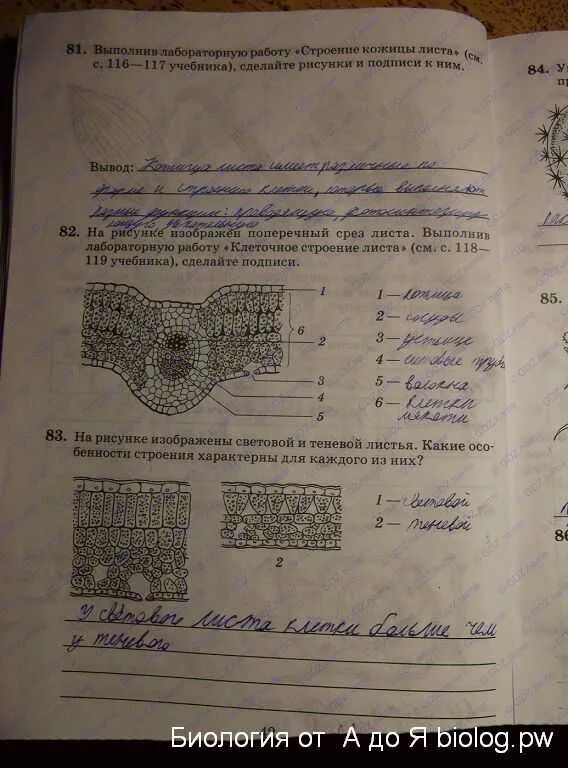 81. Выполнив лабораторную работу «Строение кожицы листа» (см.
с. 116—117 учебника), сделайте рисунки и подписи к ним.
Вывод: Кожица листа имеет различные по
форме и строению клетки, которые выполняют
разные функции:
82. На рисунке изображён поперечный срез листа. Выполнив
лабораторную работу «Клеточное строение листа» (см. с. 118—
119 учебника), сделайте подписи.
1 1 — кожица
6 2 — сосуды
2 3 — устьице
3 4 — ситовые
4 5 — волокна
5 6 — клетки
мякоти
83. На рисунке изображены световой и теневой листья. Какие осо-
бенности строения характерны для каждого из них?
1 — световой
2 — теневой
2
У светового листа клетки больше чем
у теневого
84.
85.
86
Биология от А до Я biolog.pw